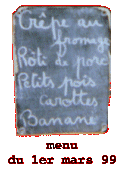 Crêpe au
fromage
Rôti de porc
Petits pois
Carottes
Banane
menu
du 1er mars 99